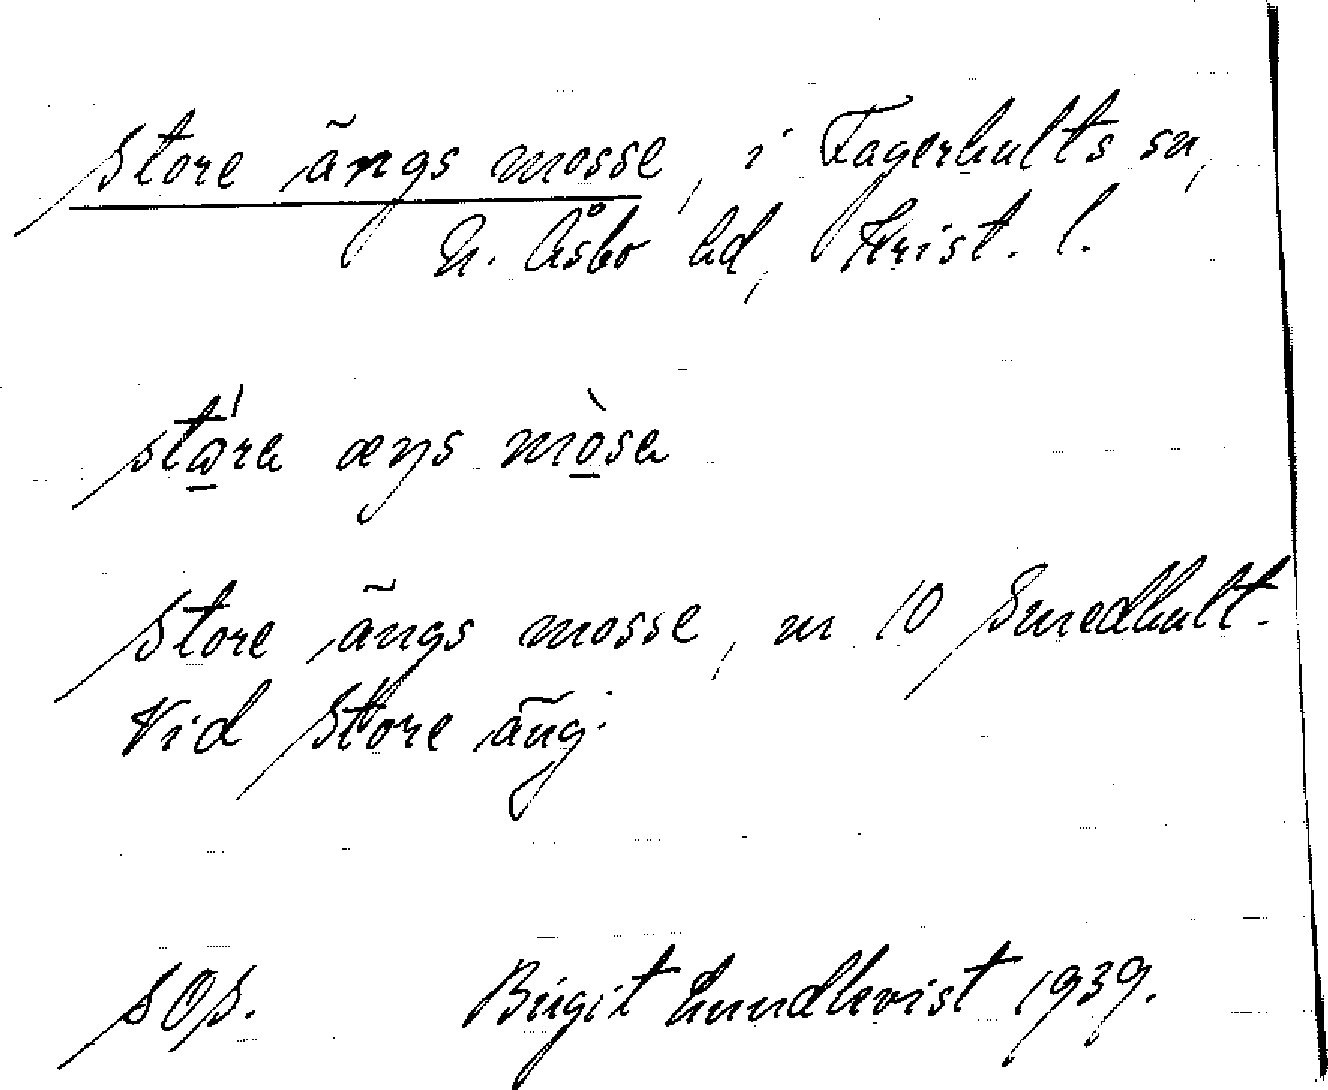 Store ängs mosse, i Fagerhults sn,
N. Åsbo hd, Krist. l.
stώ̱ra æŋs mò̱sa
Store ängs mosse, nr 10 Smedhult.
Vid Store äng.
SOS. Birgit Lundkvist 1939.